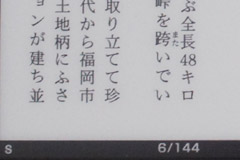 ぶ全長48キロ
峠を跨いでい
また
取り立てて珍
代から福岡市
土地柄にふさ
ョンが建ち並
S
6/144